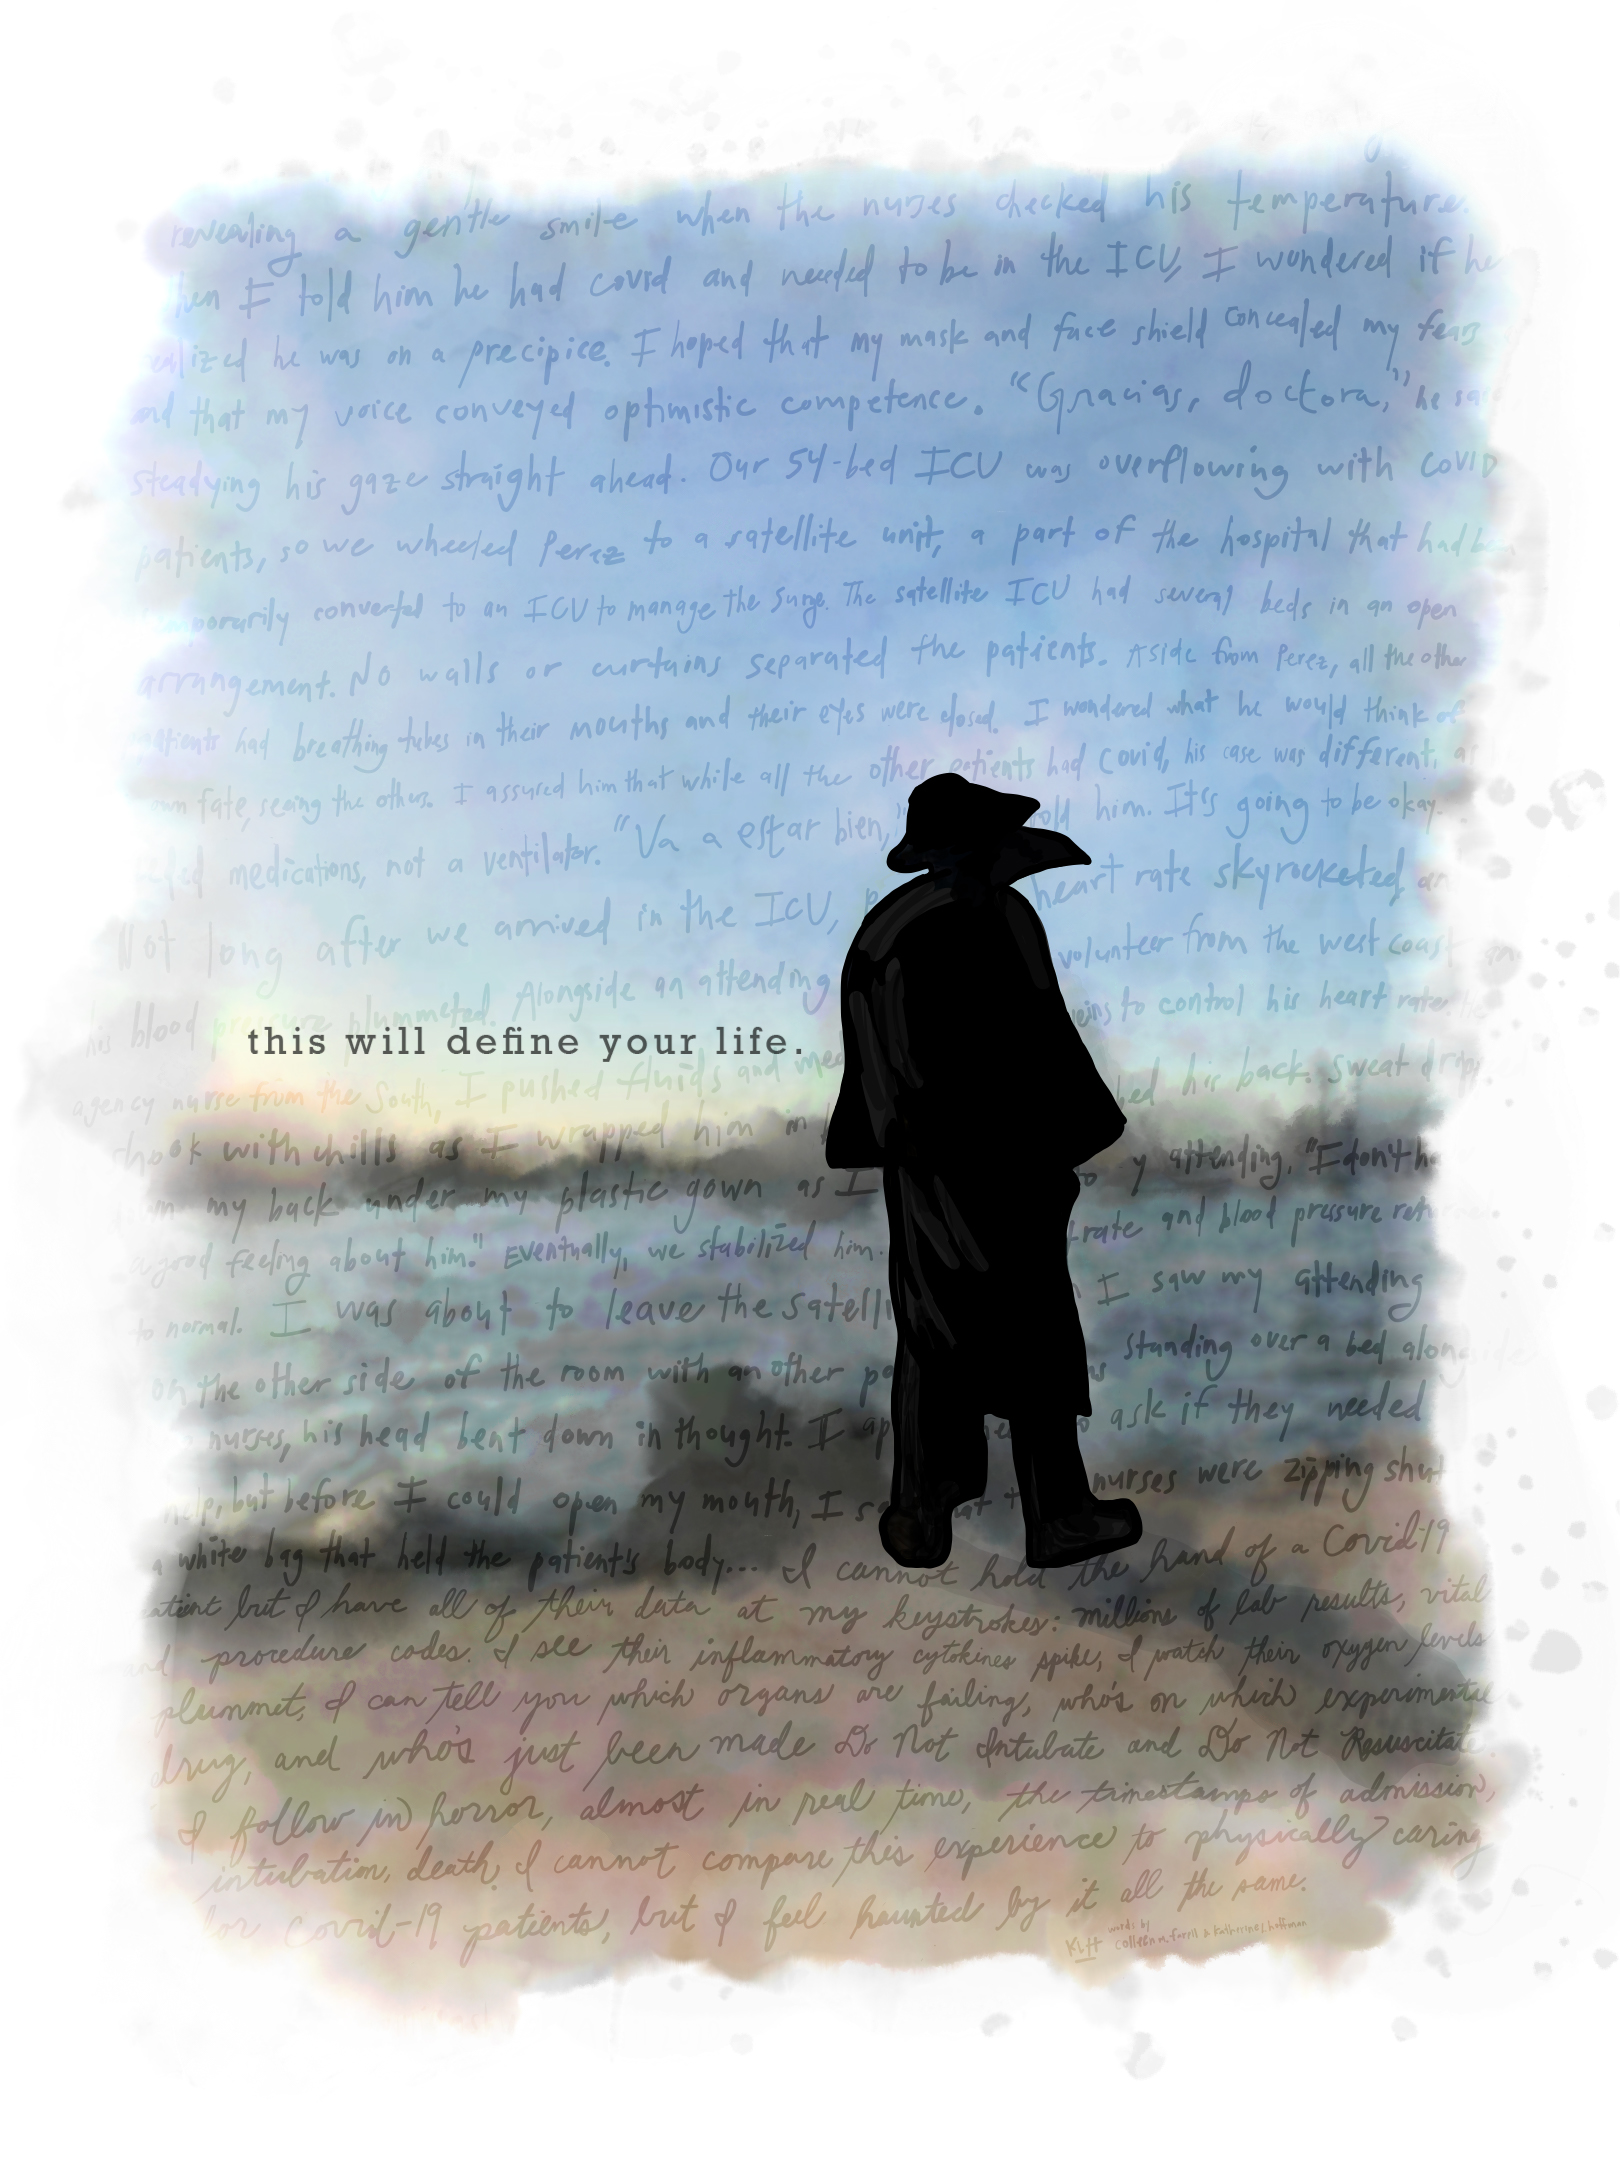 revealing a gentle smile when the nurses checked his temperature.
hen I told him he had covid and needed to be in the ICU, I wondered if he
alized he was on a precipice. I hoped that my mask and face shield concealed my fears
and that my voice conveyed optimistic competence. "Gracias, doctora," he said
steadying his gaze straight ahead. Our 54-bed ICU was overflowing with COVID
patients, so we wheeled Perez to a satellite unit, a part of the hospital that had be
mporarily converted to an ICU to manage the surge. The satellite ICU had several beds in an open
arrangement. No walls or curtains separated the patients. Aside from Perez, all the other
patients had breathing tubes in their mouths and their eyes were closed. I wondered what he would think of
own fate, seeing the others. I assured him that while all the other patients had covid, his case was different, as
eded medications, not a ventilator. "Va a estar bien," told him. It's going to be okay.
Not long after we arrived in the ICU, P heart rate skyrocketed, an
his blood pressure plummeted. Alongside an attending volunteer from the west coast an
this will define your life.
agency nurse from the South, I pushed fluids and med veins to control his heart rate. He
shook with chills as I wrapped him in b bed his back. Sweat dripp
m my back under my plastic gown as I to y attending. "I don't ha
a good feeling about him." Eventually, we stabilized him. t rate and blood pressure retur
to normal. I was about to leave the satelli I saw my attending
on the other side of the room with another pa s standing over a bed alongside
nurses, his head bent down in thought. I ap o ask if they needed
help, but before I could open my mouth, I s at t nurses were zipping shut
a white bag that held the patient's body... I cannot hold the hand of a Covid-19
patient but I have all of their data at my keystrokes: millions of lab results, vital
and procedure codes. I see their inflammatory cytokines spike, I watch their oxygen levels
plummet, I can tell you which organs are failing, who's on which experimental
drug, and who's just been made Do Not Intubate and Do Not Resuscitate.
I follow in horror, almost in real time, the timestamps of admission,
intubation, death. I cannot compare this experience to physically caring
for Covid-19 patients, but I feel haunted by it all the same.
KLH words by
colleen m. farrell & katherine l. hoffman